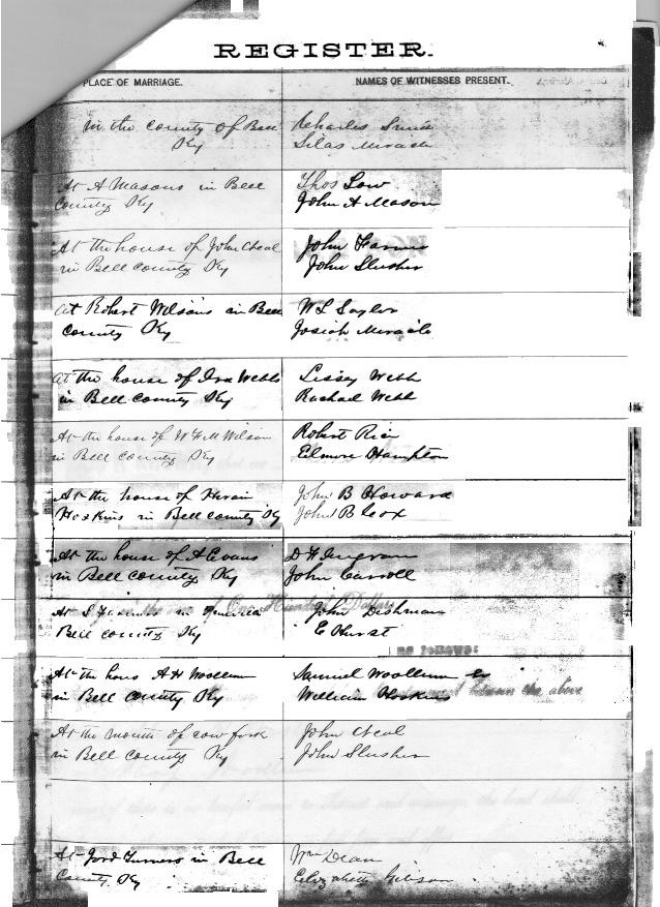 REGISTER.
PLACE OF MARRIAGE.
NAMES OF WITNESSES PRESENT.
in the county of Bell
Ky
Charles
Silas Miracle
At A Masons in Bell
County Ky
Thos Low
John A Mason
At the house of John Neal
in Bell County Ky
John Farmer
John Slusher
at Robert Wilsons in Bell
County Ky
W L Saylor
Josiah Miracle
at the house of Ira Webbs
in Bell County Ky
Lissey Webb
Rachael Webb
At the house of W F M Wilson
in Bell County Ky
Robert Rice
Elmore Hampton
At the house of Hiram
Hoskins in Bell County Ky
John B Howard
John B Cox
At the house of A Evans
in Bell County Ky
D F Ingram
John Carroll
At S in America
Bell County Ky
One Hundred Dollars
John Dishman
E Hurst
as follows:
At the hous A H Woollum
in Bell County Ky
Samuel Woollum
William Hoskins
the above
At the mouth of cow fork
in Bell County Ky
John Neal
John Slusher
At Turners in Bell
County Ky
Wm Dean
Elizabeth Gibson